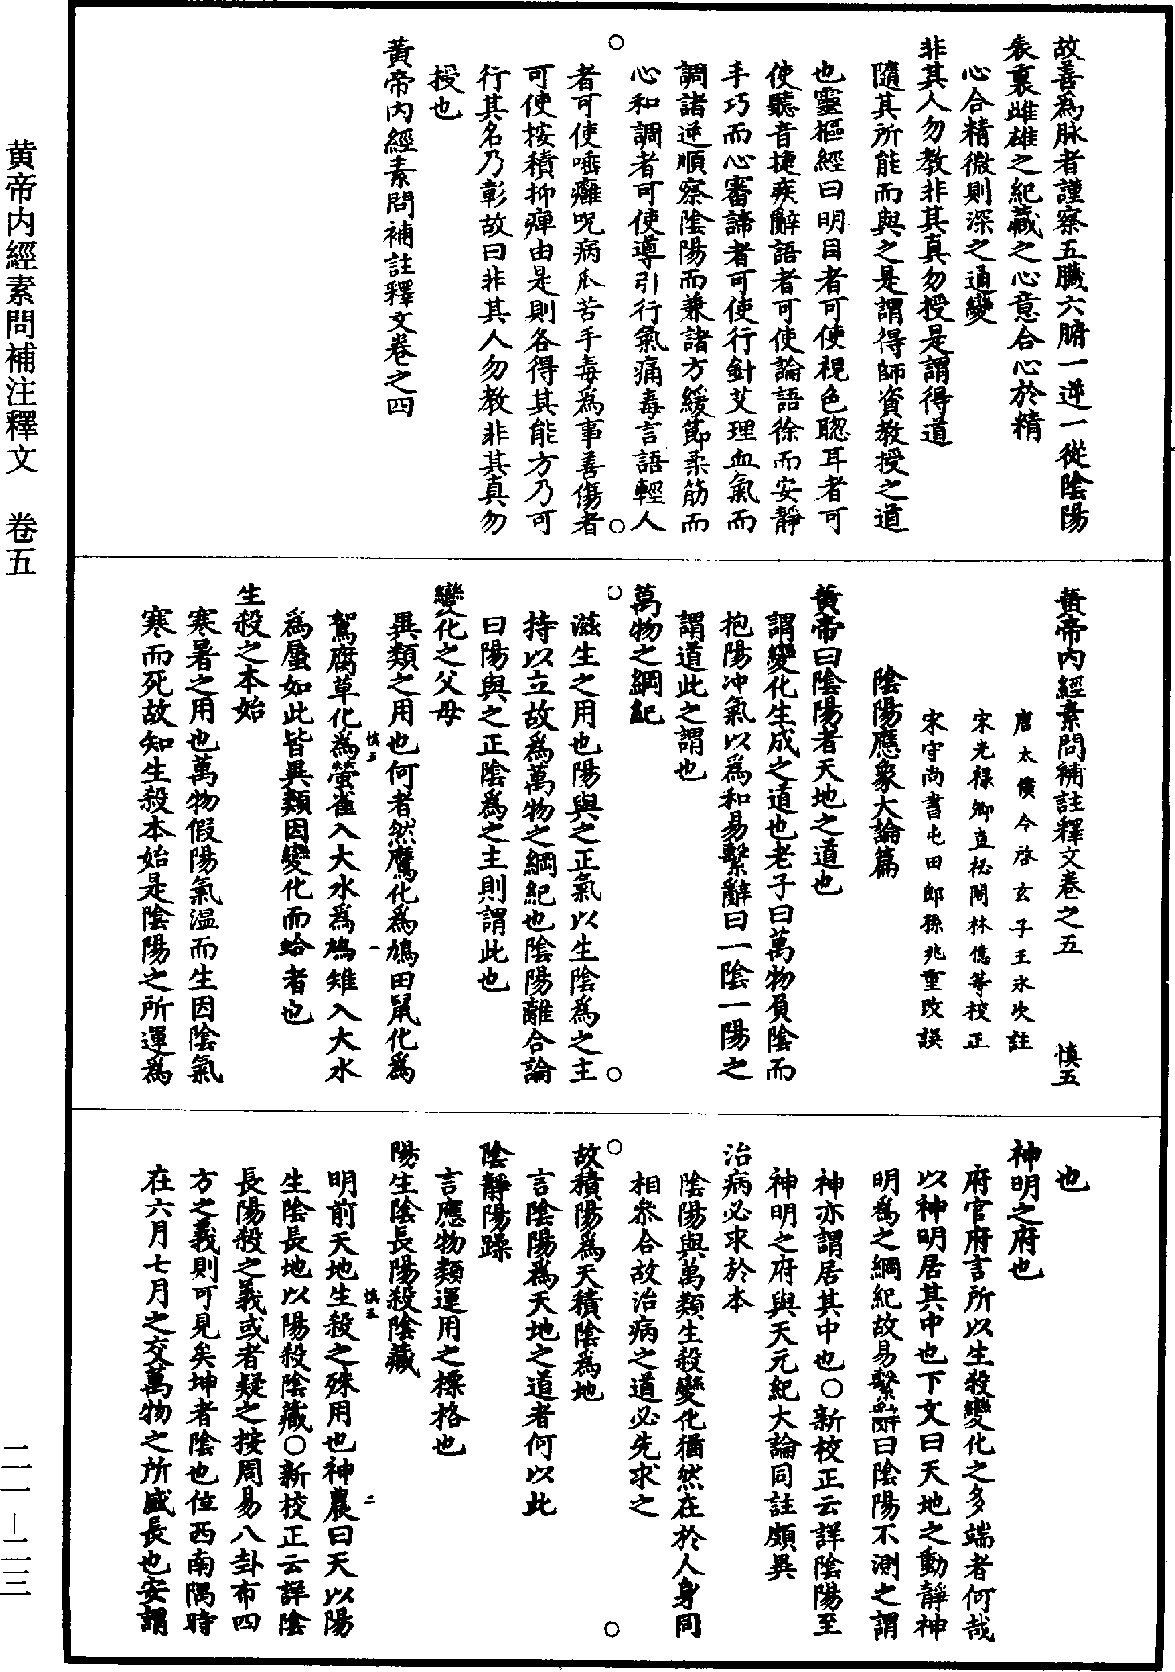 故善爲脉者謹察五臟六腑一逆一從陰陽
表裏雌雄之紀藏之心意合心於精
心合精微則深之通變
非其人勿教非其真勿授是謂得道
隨其所能而與之是謂得師資教授之道
也靈樞經曰明目者可使視色聰耳者可
使聽音捷疾辭語者可使論語徐而安靜
手巧而心審諦者可使行針艾理血氣而
調諸逆順察陰陽而兼諸方緩節柔筋而
心和調者可使導引行氣痛毒言語輕人
者可使唾癰呪病爪苦手毒爲事善傷者
可使按積抑痺由是則各得其能方乃可
行其名乃彰故曰非其人勿教非其真勿
授也
黃帝內經素問補註釋文卷之四
黃帝內經素問補註釋文卷之五 慎五
唐太僕令啓玄子王冰次註
宋光祿卿直秘閣林億等校正
宋守尚書屯田郎孫兆重改誤
陰陽應象大論篇
黃帝曰陰陽者天地之道也
謂變化生成之道也老子曰萬物負陰而
抱陽冲氣以爲和易繫辭曰一陰一陽之
謂道此之謂也
萬物之綱紀
滋生之用也陽與之正氣以生陰爲之主
持以立故爲萬物之綱紀也陰陽離合論
曰陽與之正陰爲之主則謂此也
變化之父母
異類之用也何者然鷹化爲鳩田鼠化爲
慎五 一
鴽腐草化爲螢雀入大水爲鳩雉入大水
爲蜃如此皆異類因變化而蛤者也
生殺之本始
寒暑之用也萬物假陽氣温而生因陰氣
寒而死故知生殺本始是陰陽之所運爲
也
神明之府也
府官府言所以生殺變化之多端者何哉
以神明居其中也下文曰天地之動靜神
明爲之綱紀故易繫辭曰陰陽不測之謂
神亦謂居其中也○新校正云詳陰陽至
神明之府與天元紀大論同註頗異
治病必求於本
陰陽與萬類生殺變化猶然在於人身同
相參合故治病之道必先求之
故積陽爲天積陰爲地
言陰陽爲天地之道者何以此
陰靜陽躁
言應物類運用之標格也
陽生陰長陽殺陰藏
慎五 二
明前天地生殺之殊用也神農曰天以陽
生陰長地以陽殺陰藏○新校正云詳陰
長陽殺之義或者疑之按周易八卦布四
方之義則可見矣坤者陰也位西南隅時
在六月七月之交萬物之所盛長也安謂
黄帝内經素問補注釋文 卷五
二一－二三